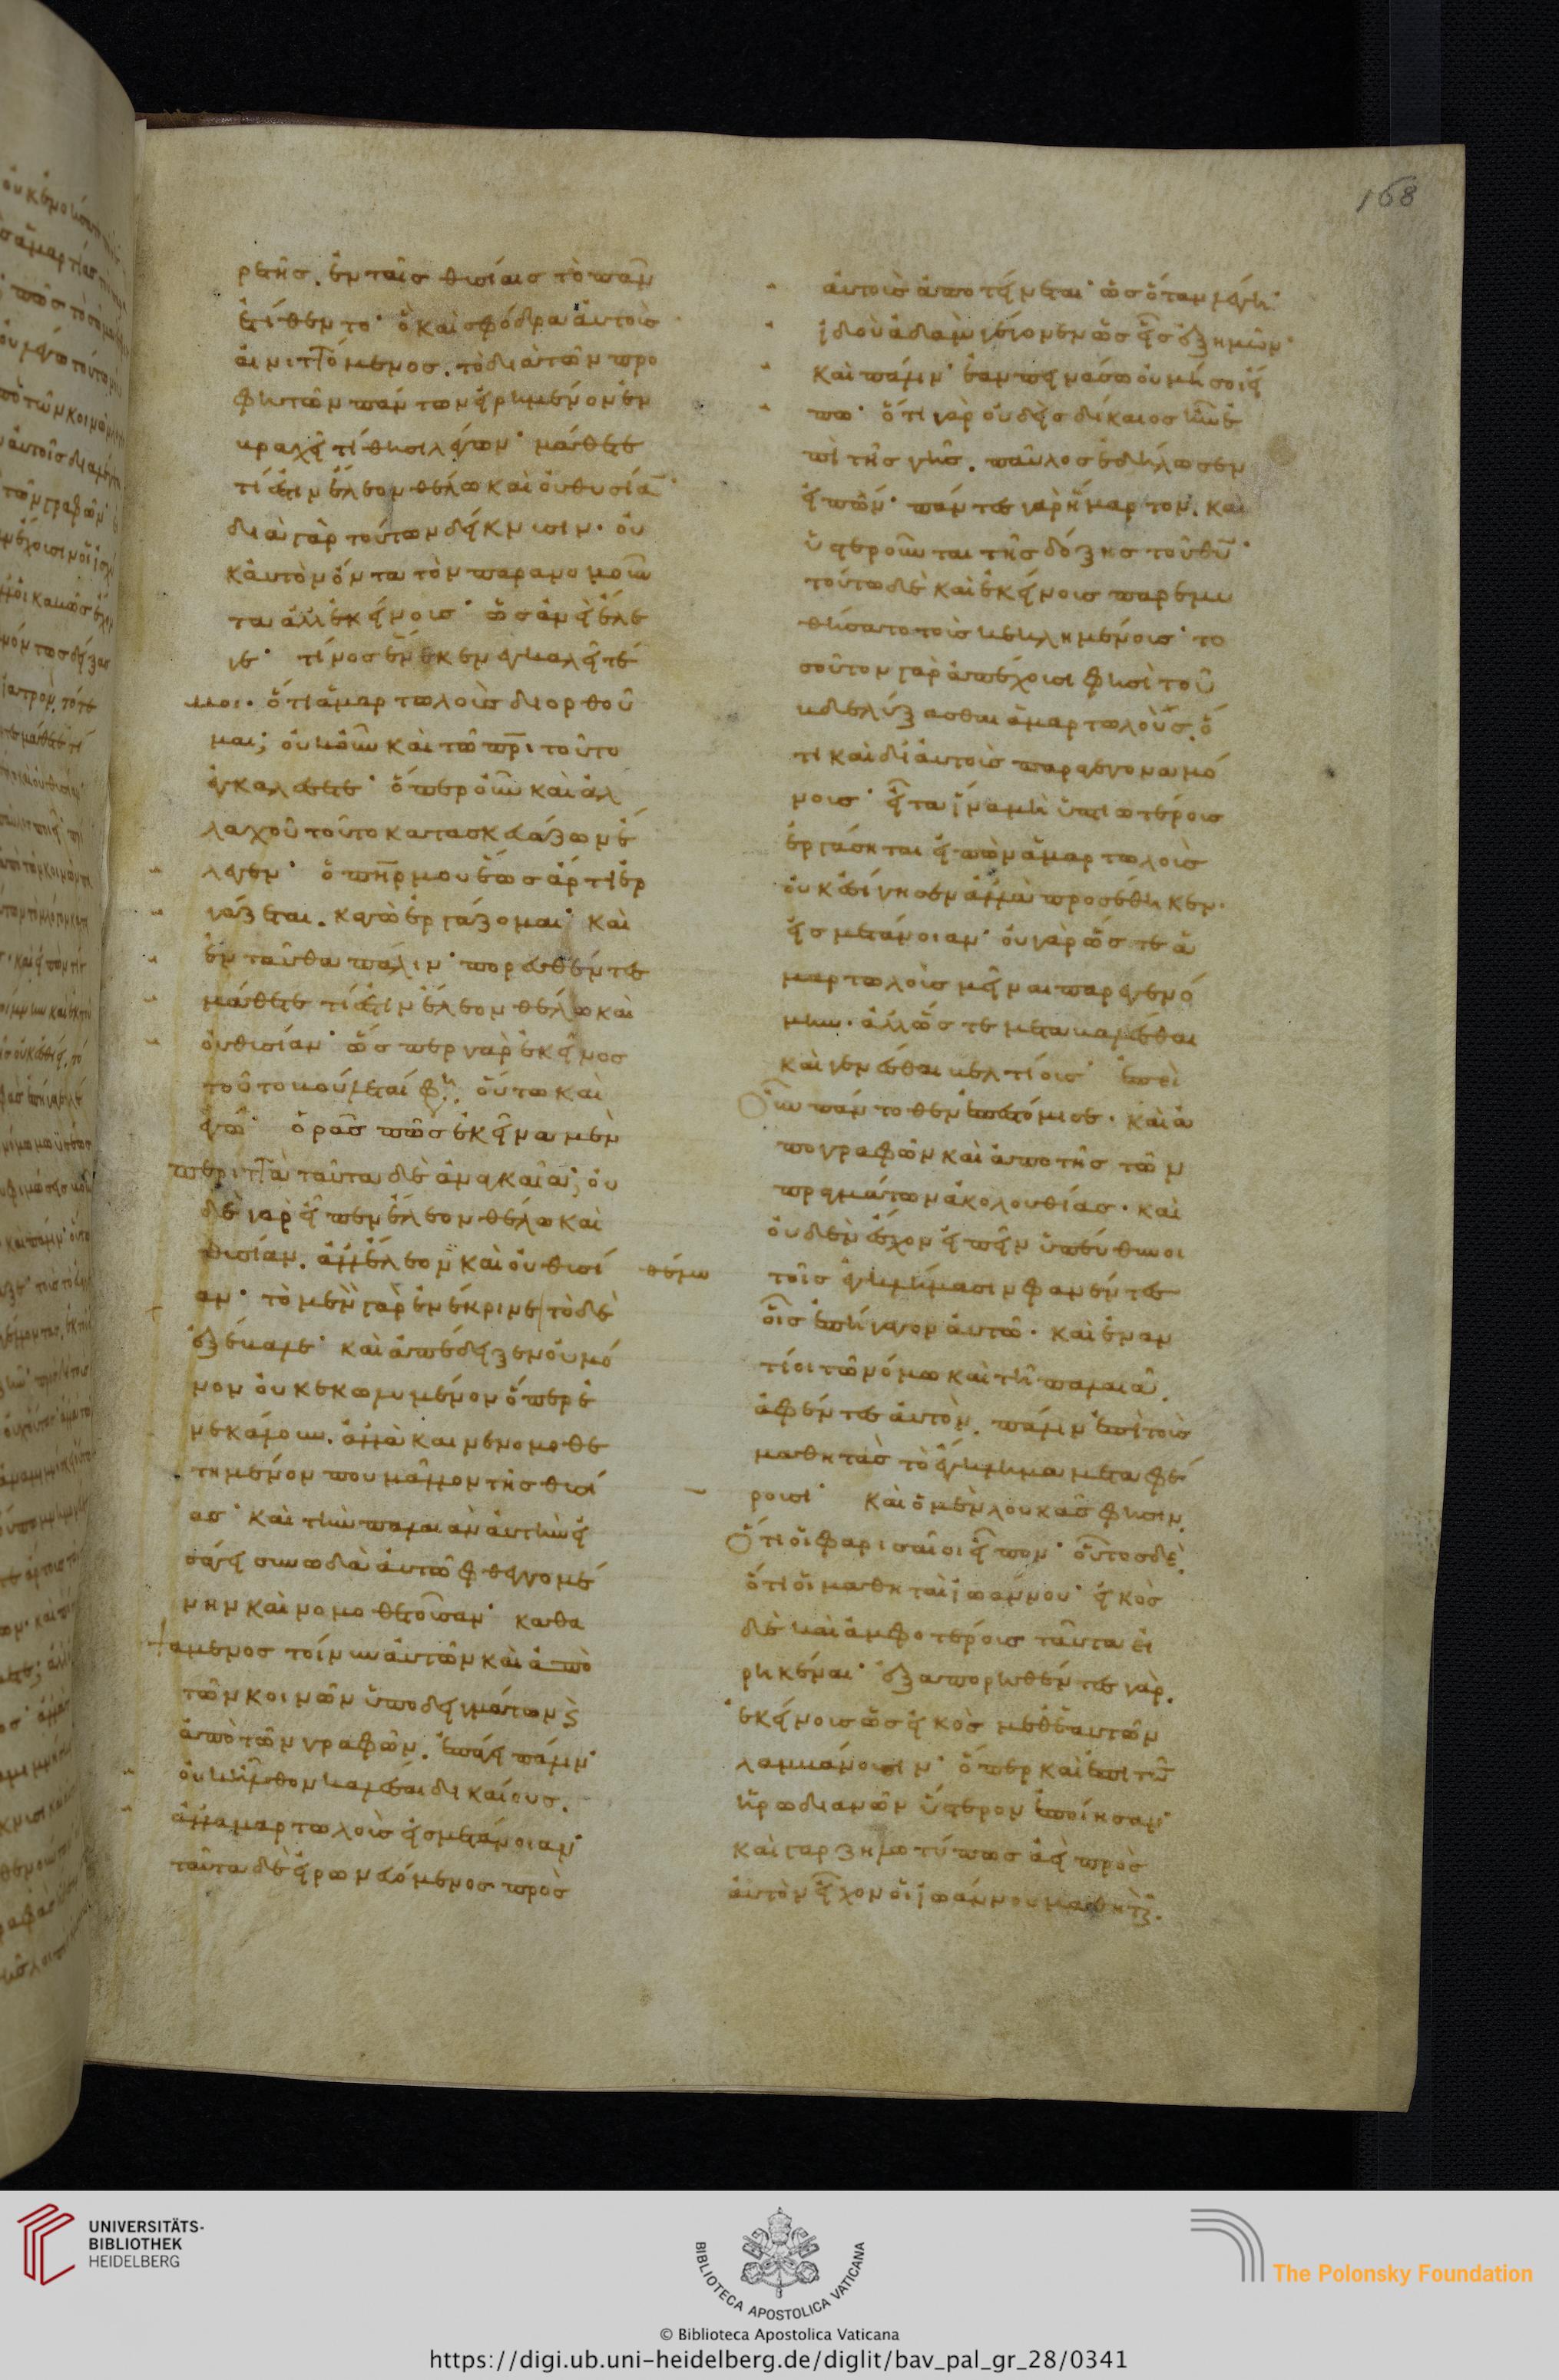 168
ρετῆς. ἐν ταῖς θυσίαις τὸ πᾶν
ἐτίθεντο· ὃ καὶ σφόδρα αὐτοῖς
αἰνιττόμενος. τὸ διὰ τῶν προ
φητῶν πάντων εἰρημένον ἐν
βραχεῖ τίθησι λέγων· μάθετε
τί ἐστιν ἔλεον θέλω καὶ οὐ θυσίᾱ·
διὰ γὰρ τούτων δείκνυσιν· οὐ
κ αὐτὸν ὄντα τὸν παρανομοῦν
τα ἀλλ' ἐκείνους· ὡσανεὶ ἔλε
γε· τίνος ἕνεκεν ἐγκαλεῖτέ
μοι. ὅτι ἁμαρτωλοὺς διορθοῦ
μαι; οὐκοῦν καὶ τῶ πρ̅ι τοῦτο
ἐγκαλέσετε· ὅπερ οὖν καὶ ἀλ
λαχοῦ τοῦτο κατασκευάζων ἔ
λεγεν· ὁ πη̅ρ μου ἕως ἄρτι ἐρ
γάζεται. κἀγὼ ἐργάζομαι· καὶ
ἐνταῦθα πάλιν· πορευθέντες
μάθετε τί ἐστιν ἔλεον θέλω καὶ
οὐ θυσίαν· ὥσπερ γὰρ ἐκεῖνος
τοῦτο βούλεταί φη: οὕτω καὶ
ἐγώ· ὁρᾶς πῶς ἐκεῖνα μὲν
περιττὰ ταῦτα δὲ ἀναγκαῖα; οὐ
δὲ γὰρ εἶπεν ἔλεον θέλω καὶ
θυσίαν. ἀλλ' ἔλεον καὶ οὐ θυσί θέλω
αν· τὸ μὲν γὰρ ἐνέκρινε τὸ δὲ
ἐξέβαλε· καὶ ἀπέδειξεν οὐ μό
νον οὐ κεκωλυμένον ὅπερ ἐ
νεκάλουν. ἀλλὰ και νενομοθε
τημένον που μᾶλλον τῆς θυσί
ας· καὶ τὴν παλαιὰν αὐτὴν εἰ
σάγει συνωδὰ αὐτῶ φθεγγομέ
νην καὶ νομοθετοῦσαν· καθα
ψαμενος τοίνυν αὐτῶν καὶ ἀπὸ
τῶν κοινῶν ὑποδειγμάτων ϗ
ἀπὸ τῶν γραφῶν. ἐπάγει πάλιν·
οὐκ ἦλθον καλέσαι δικαίους.
ἀλλ' ἁμαρτωλοὺς εἰς μετάνοιαν·
ταῦτα δὲ εἰρωνευόμενος πρὸς
αὐτοὺς ἀποτείνεται· ὡς ὅταν λέγη·
ἰδοὺ ἀδὰμ γέγονεν ὡς εἷς ἐξ ἡμῶν·
καὶ πάλιν· ἐὰν πεινάσω οὐ μή σοι εἴ
πω· ὅτι γὰρ οὐδεὶς δίκαιος ἦν ἐ
πὶ τῆς γῆς. παῦλος ἐδήλωσεν
εἰπών· πάντες γὰρ ἥμαρτον. καὶ
ὑστεροῦνται τῆς δόξης τοῦ θυ̅·
τούτω δὲ καὶ ἐκείνους παρεμυ
θήσατο τοὺς κεκλημένους· το
σοῦτον γὰρ ἀπέχουσι φησὶ τοῦ
βδελύξασθαι ἁμαρτωλούς. ὅ
τι καὶ δι' αὐτοὺς παραγέγονα μό
νους· εἶτα ἵνα μὴ ὑπτιωτέρους
ἐργάσηται εἰπὼν ἁμαρτωλοὺς
οὐκ ἐσίγησεν ἀλλὰ προσέθηκεν.
εἰς μετάνοιαν· οὐ γὰρ ὥστε ἁ
μαρτωλοὺς μεῖναι παρεγενό
μην. ἀλλ' ὥστε μεταβαλέσθαι
καὶ γενέσθαι βελτίους· ἐπεὶ
οὖν πάντοθεν ἐπεστόμισε. καὶ ἀ
πὸ γραφῶν καὶ ἀπὸ τῆς τῶν
πραγμάτων ἀκολουθίας. καὶ
οὐδὲν εἶχον εἰπεῖν ὑπεύθυνοι
τοῖς ἐγκλήμασιν φανέντες
οἷς ἐπήγαγον αὐτῶ. καὶ ἐναν
τίοι τῶ νόμω καὶ τῆ παλαιᾶ.
ἀφέντες αὐτὸν. πάλιν ἐπὶ τοὺς
μαθητὰς τὸ ἔγκλημα μεταφέ
ρουσι· καὶ ὁ μὲν λουκᾶς φησιν.
ὅτι οἱ φαρισαῖοι εἶπον· οὗτος δὲ.
ὅτι οἱ μαθηταὶ ἰωάννου· εἰκὸς
δὲ καὶ ἀμφοτέρους ταῦτα εἰ
ρηκέναι· ἐξαπορηθέντες γὰρ.
ἐκείνους ὡς εἰκὸς μεθ' ἑαυτῶν
λαμβάνουσιν· ὅπερ καὶ ἐπὶ τῶν
ἡρωδιανῶν ὕστερον ἐποίησαν·
καὶ γαρ ζηλοτύπως ἀεὶ πρὸς
αὐτὸν εἶχον οἱ ἰωάννου μαθηταὶ.
UNIVERSITÄTS-
BIBLIOTHEK
HEIDELBERG
BIBLIOTECA APOSTOLICA VATICANA
The Polonsky Foundation
© Biblioteca Apostolica Vaticana
https://digi.ub.uni-heidelberg.de/diglit/bav_pal_gr_28/0341